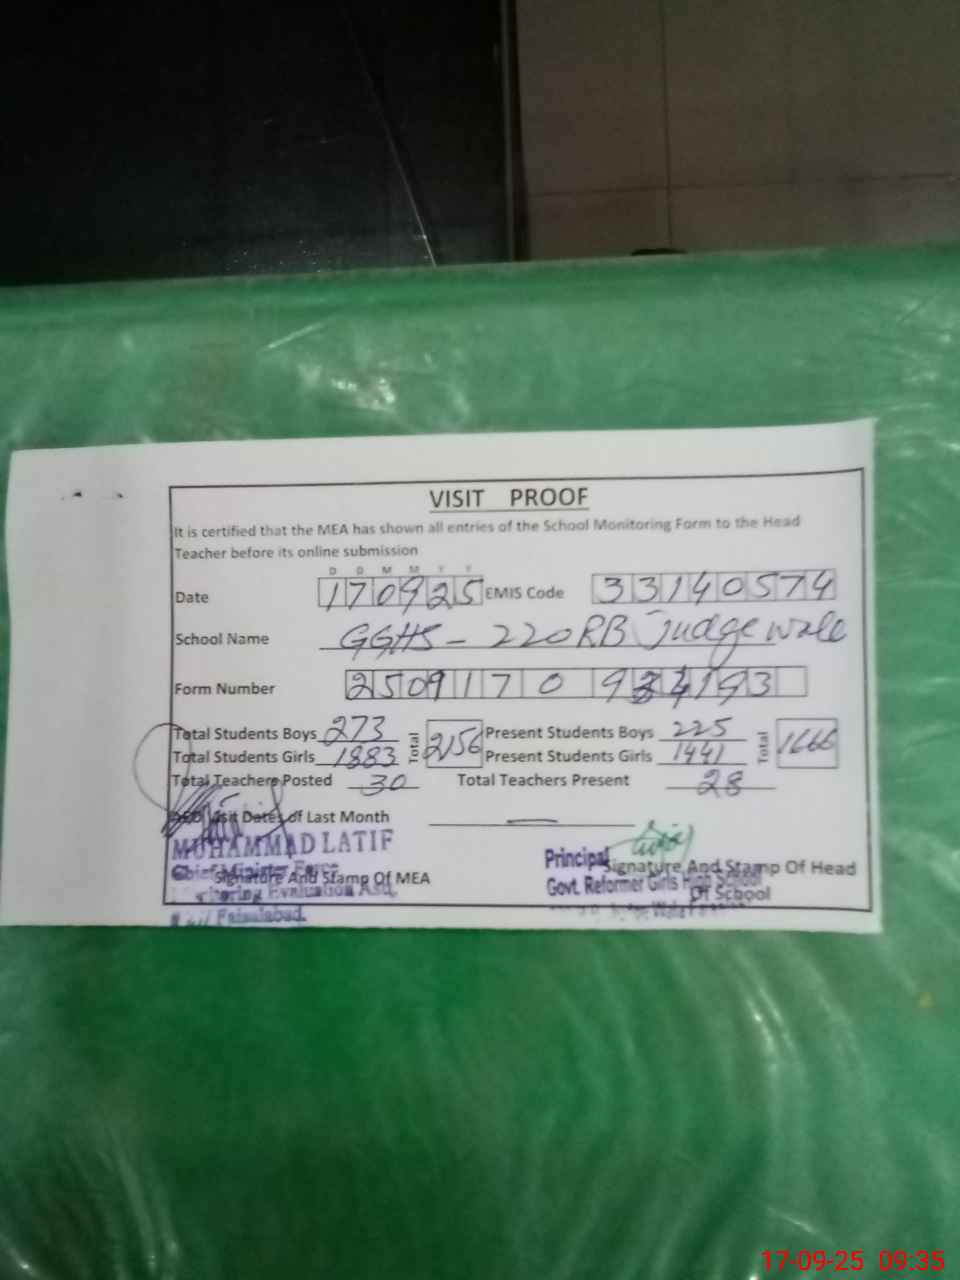 VISIT PROOF
It is certified that the MEA has shown all entries of the School Monitoring Form to the Head
Teacher before its online submission
D D M M Y Y
Date 170925 EMIS Code 33140574
School Name GGHS - 220RB Judgewala
Form Number 2509170 9 4193
Total Students Boys 273 Total 2156 Present Students Boys 225 Total 1666
Total Students Girls 1883 Present Students Girls 1441
Total Teachers Posted 30 Total Teachers Present 28
AEO Visit Dates of Last Month —
MUHAMMAD LATIF
Chief Minister Force
Monitoring Evaluation Asd.
Faisalabad.
Signature And Stamp Of MEA
Principal
Govt. Reformer Girls High School
Signature And Stamp Of Head
Of School
17-09-25 09:35